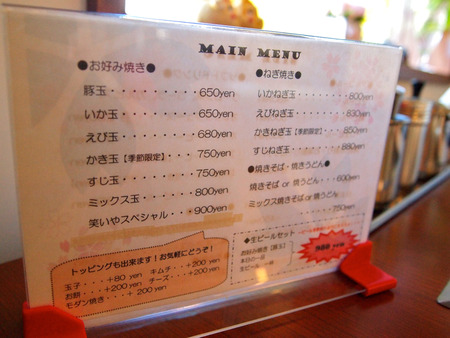 MAIN MENU
●お好み焼き●
豚玉・・・・・・・・・650yen
いか玉・・・・・・・・650yen
えび玉・・・・・・・・680yen
かき玉【季節限定】・・・750yen
すじ玉・・・・・・・・750yen
ミックス玉・・・・・・800yen
笑いやスペシャル・・・900yen
●ねぎ焼き●
いかねぎ玉・・・・・・800yen
えびねぎ玉・・・・・・830yen
かきねぎ玉【季節限定】・・850yen
すじねぎ玉・・・・・・850yen
●焼きそば・焼きうどん●
焼きそば or 焼うどん・・・600yen
ミックス焼きそば or 焼うどん
・・・・・・・・750yen
トッピングも出来ます！お気軽にどうぞ！
玉子・・・+80 yen キムチ・・+200 yen
お餅・・・+200 yen チーズ・・・+200 yen
モダン焼き・・・+200 yen
◆生ビールセット
お好み焼き【豚玉】
本日の一品
生ビール 一杯